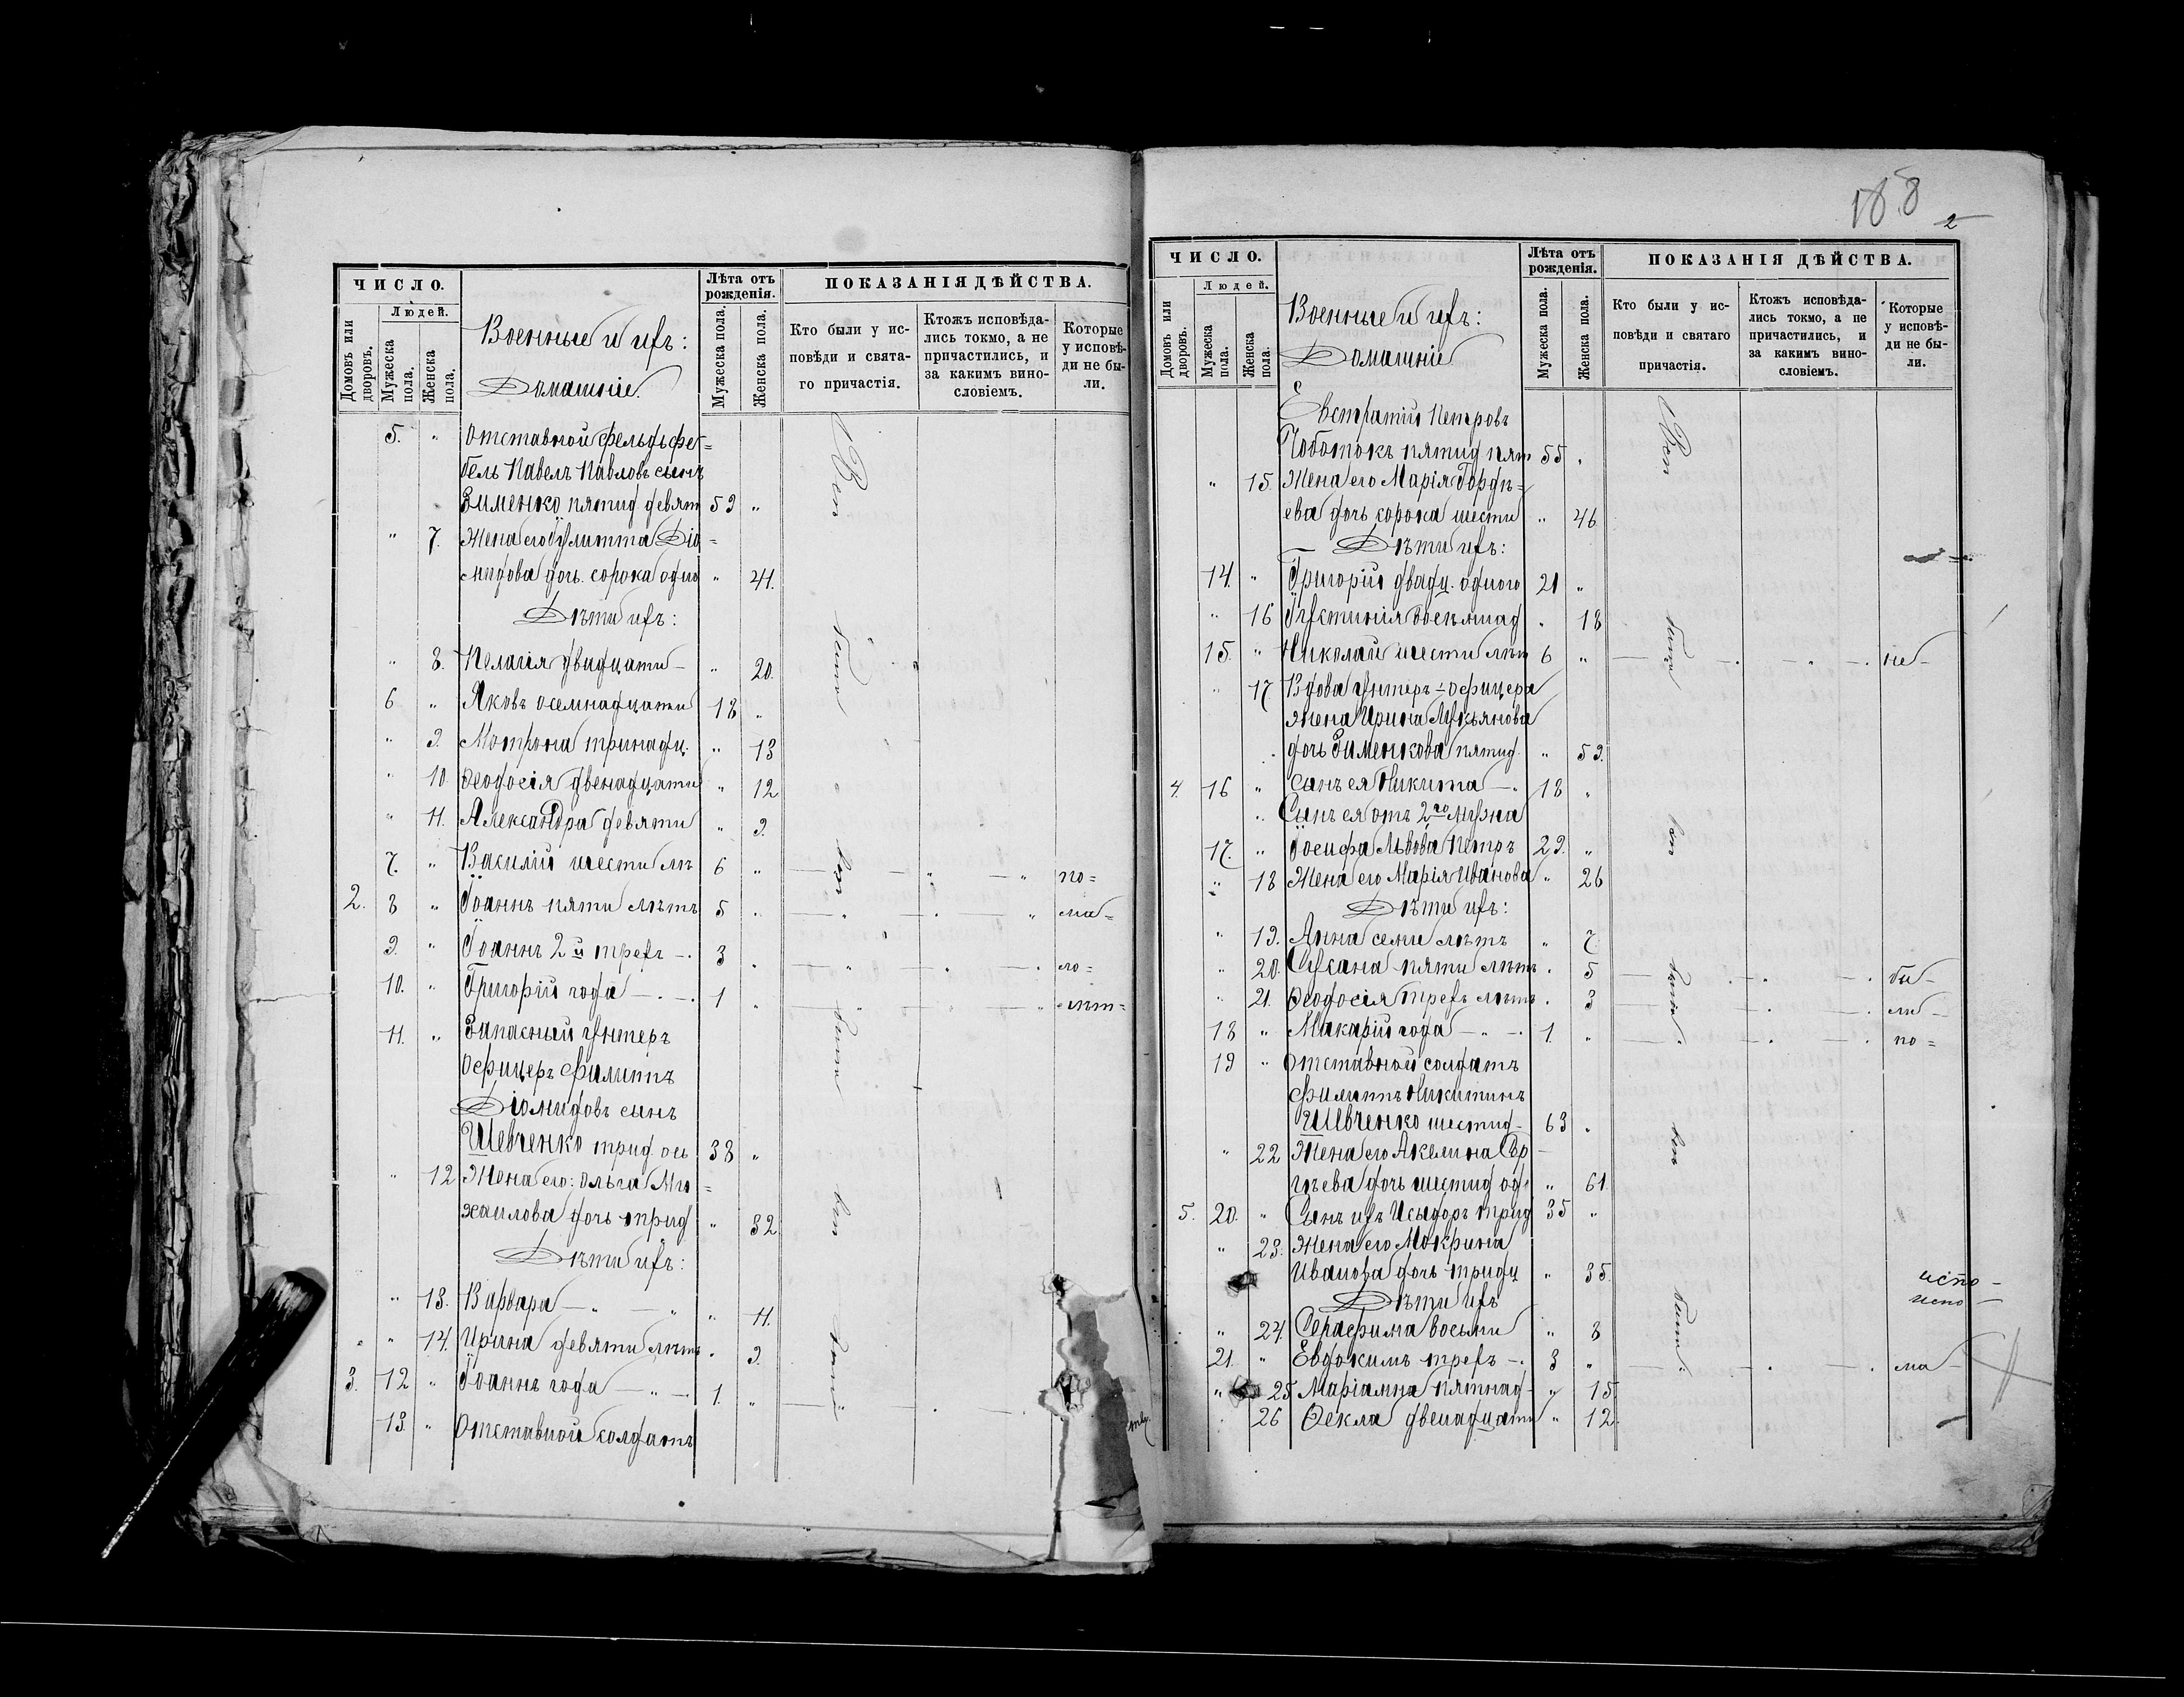 ЧИСЛО.
Людей.
Домовъ или дворовъ.
Мужеска пола.
Женска пола.
Военные и ихъ:
Домашніе.
Лѣта отъ рожденія.
Мужеска пола.
Женска пола.
ПОКАЗАНІЯ ДѢЙСТВА.
Кто были у ис-
повѣди и свята-
го причастія.
Ктожъ исповѣда-
лись токмо, а не
причастились, и
за какимъ вино-
словіемъ.
Которые
у исповѣ-
ди не бы-
ли.
5. " Отставной фельдфе=
бель Павелъ Павловъ сынъ
Зименко пятид девят 59 "
" 7. Жена его Іулитта Діо=
мидова дочь сорока одно " 41.
Дѣти ихъ:
" 8. Пелагія двадцати – " 20.
6 " Яковъ осемнадцати 18 "
" 9. Мотрона тринадц. " 13
" 10 Ѳеодосія двенадцати " 12
" 11. Александра девяти " 9.
7. " Василій шести лѣ 6 " — " — " по=
2. 8 " Іоаннъ пяти лѣтъ 5 " — " — " ма=
9. " Іоаннъ 2й трехъ –. 3 " — " — ло=
10. " Григорій года –.–. 1 " — " — " лѣт=
11. " Запасный унтеръ
Офицеръ Филиппъ
Діомидовъ сынъ
Шевченко трид. ось 38 "
" 12 Жена его: Ольга Ми=
хаилова дочь трид " 32
Дѣти ихъ:
" 13. Варвара – " – " " 11.
" 14. Ирина девяти лѣтъ " 9.
3. 12 " Іоаннъ года – " –. 1. " —
13. " Отставной солдатъ
188
2
ЧИСЛО.
Людей.
Домовъ или дворовъ.
Мужеска пола.
Женска пола.
Военные и ихъ:
Домашніе
Лѣта отъ рожденія.
Мужеска пола.
Женска пола.
ПОКАЗАНІЯ ДѢЙСТВА.
Кто были у ис-
повѣди и святаго
причастія.
Ктожъ исповѣда-
лись токмо, а не
причастились, и
за какимъ вино-
словіемъ.
Которые
у исповѣ-
ди не бы-
ли.
Евстратій Петровъ
Чоботокъ пятид пят 55 "
" 15. Жена его Марія Гордѣ=
ева дочь сорока шести " 46
Дѣти ихъ:
14. " Григорій двадц. одного 21 "
" 16 Іустинія восемнад " 18
15. " Николай шести лѣт 6 " — не–
" 17 Вдова унтеръ-офицера
жена Ирина Лукьянова
дочь Зименкова пятид. " 59.
4. 16 " Сынъ ея Никита –. 18 "
Сынъ ея отъ 2го мужа
17. " Іосифа Львова Петръ 29. "
" 18 Жена его Марія Иванова " 26
Дѣти ихъ:
" 19. Анна семи лѣтъ " 7
" 20. Сусана пяти лѣтъ " 5 — бы–
" 21. Ѳеодосія трехъ лѣтъ " 3 — ли–
18 " Макарій года – " –. 1. " — по=
19 " Отставной солдатъ
Филиппъ Никитинъ
Шевченко шестид– 63 "
" 22 Жена его Акелина Сер
гѣева дочь шестид од " 61.
5. 20. " Сынъ ихъ Исидоръ трид 35 "
" 23. Жена его Мокрина
Иванова дочь тридц " 35.
испо–
испо–
Дѣти ихъ
" 24. Серафима восьми " 8
21. " Евдокимъ трехъ –. 3 " — ма–
" 25 Маріамна пятнад– " 15
26 Ѳекла двенадцати " 12.